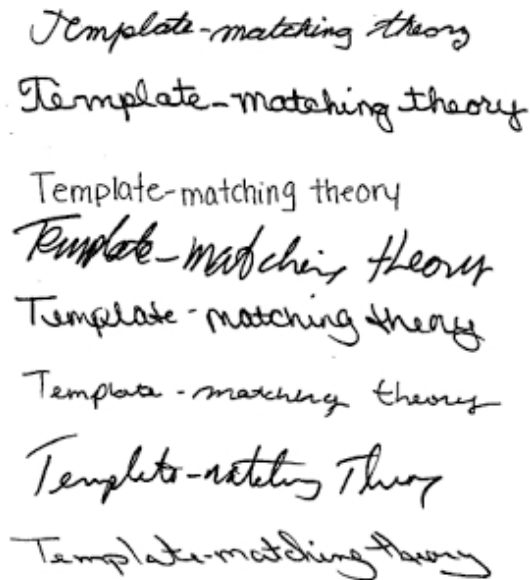 Template-matching theory
Template-matching theory
Template-matching theory
Template-matching theory
Template-matching theory
Template-matching theory
Template-matching Theory
Template-matching theory